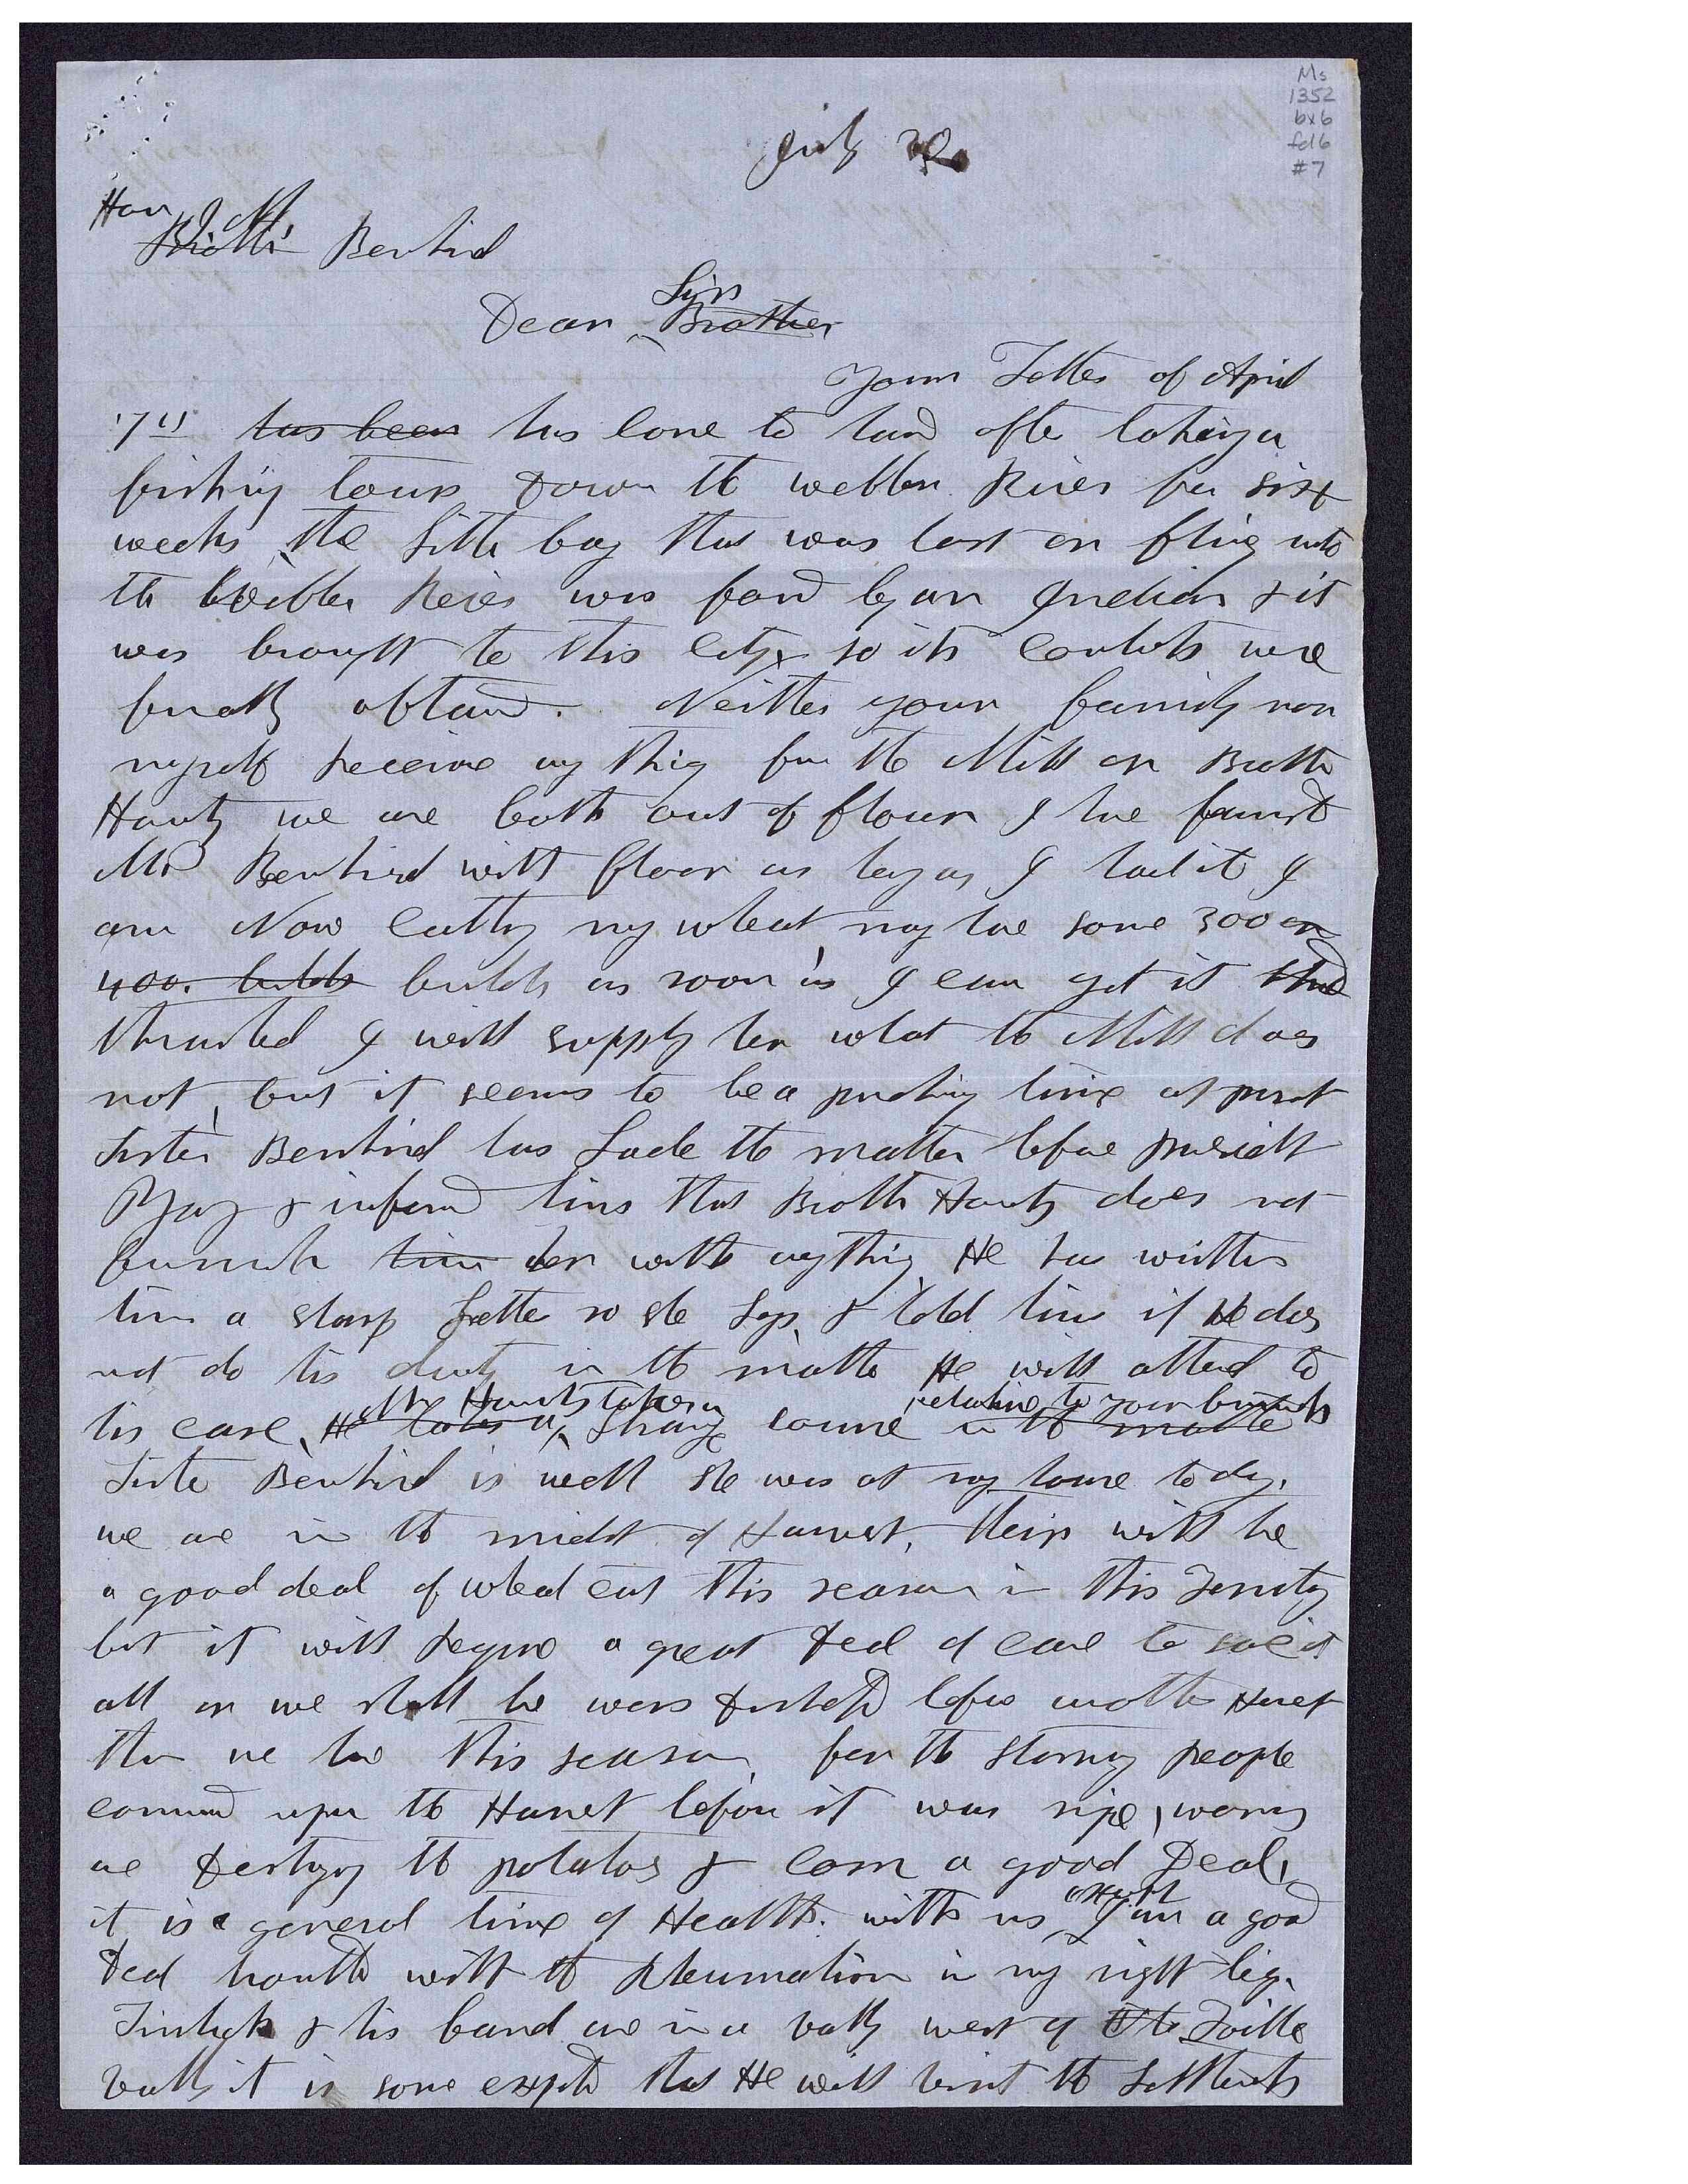 Ms
1352
bx6
fd6
#7
July 20
Hon J M
Brother Bernhisel
Sir
Dear Brother
Your Letter of April
17th has been has come to hand after taking a
fishing tour down the webber River for six
weeks the little bag that was lost on flting into
the Webber River was found by an Indian & it
was brought to this city & so its contents were
finally obtaind. Neither your family nor
myself receive any thing from the Mill or Brother
Hanty we are both out of flour I have furnishd
Mrs Bernhisel with floor as long as I had it I
am Now cutting my wheat may have some 300 or
400. bushels bushels as soon as I can get it thrs
thrashed I will supply her what the Mill does
not, but it seems to be a pinching time at present
Sister Bernhisel has Lade the matter before President
Young & informd him that Brother Hanty does not
furnish him her with any thing He has written
him a sharp Letter so she says & told him if He does
not do his duty in the matter He will attend to
Mr Hanty takes a relative to your
his case, He takes a strange course in the matter
Sister Bernhisel is well she was at my house to day.
we are in the midst of Harvest, their will be
a good deal of wheat cut this season in this Territory
but it will require a great deal of care to save it
all or we shall be wors distressd before another Harvest
than we have this season, for the starving people
commencd upon the Harvest before it was ripe, worms
are destroying the potatoes & corn a good Deal,
it is a general time of Health. with us I am a good
deal troubled with the Rheumatism in my right leg.
Tintick & his band are in a vally west of Fillmore
vally it is some expected that He will visit the settlements